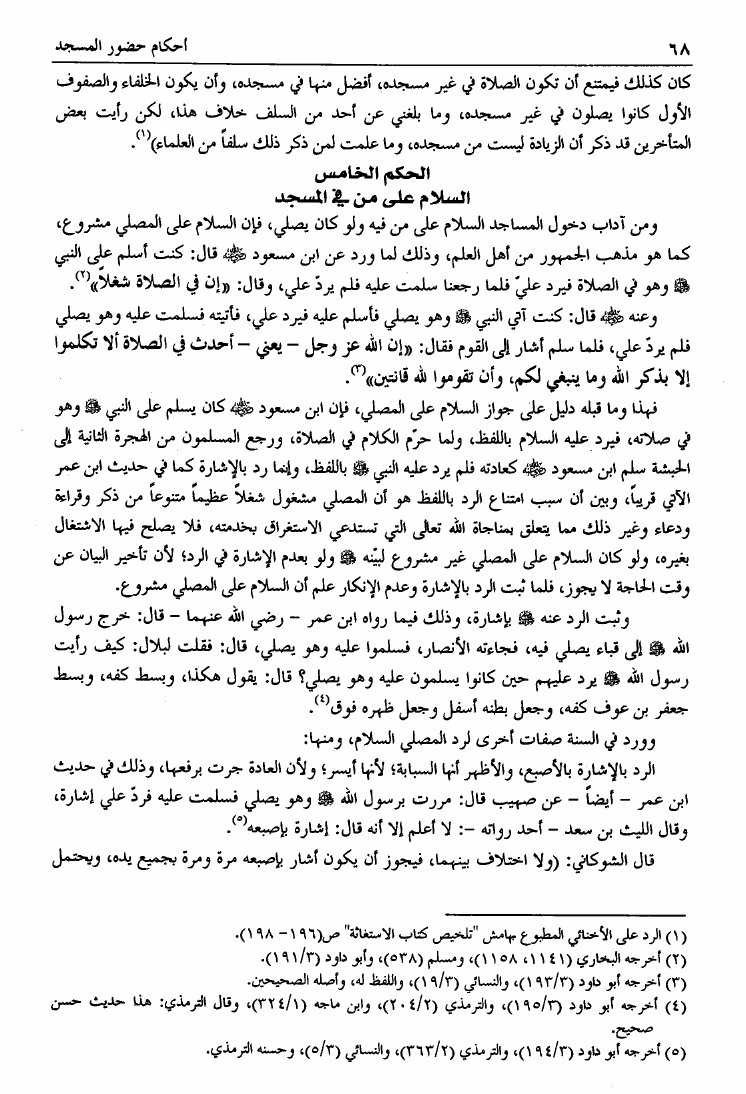 ٦٨ أحكام حضور المسجد
كان كذلك فيمتنع أن تكون الصلاة في غير مسجده، أفضل منها في مسجده، وأن يكون الخلفاء والصفوف
الأول كانوا يصلون في غير مسجده، وما بلغني عن أحد من السلف خلاف هذا، لكن رأيت بعض
المتأخرين قد ذكر أن الزيادة ليست من مسجده، وما علمت لمن ذكر ذلك سلفاً من العلماء)(١).
الحكم الخامس
السلام على من في المسجد
ومن آداب دخول المساجد السلام على من فيه ولو كان يصلي، فإن السلام على المصلي مشروع،
كما هو مذهب الجمهور من أهل العلم، وذلك لما ورد عن ابن مسعود ﵁ قال: كنت أسلم على النبي
ﷺ وهو في الصلاة فيرد عليّ فلما رجعنا سلمت عليه فلم يردّ علي، وقال: «إن في الصلاة شغلاً»(٢).
وعنه ﵁ قال: كنت آتي النبي ﷺ وهو يصلي فأسلم عليه فيرد علي، فأتيته فسلمت عليه وهو يصلي
فلم يردّ علي، فلما سلم أشار إلى القوم فقال: «إن الله عز وجل – يعني – أحدث في الصلاة ألا تكلموا
إلا بذكر الله وما ينبغي لكم، وأن تقوموا لله قانتين»(٣).
فهذا وما قبله دليل على جواز السلام على المصلي، فإن ابن مسعود ﵁ كان يسلم على النبي ﷺ وهو
في صلاته، فيرد عليه السلام باللفظ، ولما حرّم الكلام في الصلاة، ورجع المسلمون من الهجرة الثانية إلى
الحبشة سلم ابن مسعود ﵁ كعادته فلم يرد عليه النبي ﷺ باللفظ، وإنما رد بالإشارة كما في حديث ابن عمر
الآتي قريباً، وبين أن سبب امتناع الرد باللفظ هو أن المصلي مشغول شغلاً عظيماً متنوعاً من ذكر وقراءة
ودعاء وغير ذلك مما يتعلق بمناجاة الله تعالى التي تستدعي الاستغراق بخدمته، فلا يصلح فيها الاشتغال
بغيره، ولو كان السلام على المصلي غير مشروع لبيّنه ﷺ ولو بعدم الإشارة في الرد؛ لأن تأخير البيان عن
وقت الحاجة لا يجوز، فلما ثبت الرد بالإشارة وعدم الإنكار علم أن السلام على المصلي مشروع.
وثبت الرد عنه ﷺ بإشارة، وذلك فيما رواه ابن عمر – رضي الله عنهما – قال: خرج رسول
الله ﷺ إلى قباء يصلي فيه، فجاءته الأنصار، فسلموا عليه وهو يصلي، قال: فقلت لبلال: كيف رأيت
رسول الله ﷺ يرد عليهم حين كانوا يسلمون عليه وهو يصلي؟ قال: يقول هكذا، وبسط كفه، وبسط
جعفر بن عوف كفه، وجعل بطنه أسفل وجعل ظهره فوق(٤).
وورد في السنة صفات أخرى لرد المصلي السلام، ومنها:
الرد بالإشارة بالأصبع، والأظهر أنها السبابة؛ لأنها أيسر؛ ولأن العادة جرت برفعها، وذلك في حديث
ابن عمر – أيضاً – عن صهيب قال: مررت برسول الله ﷺ وهو يصلي فسلمت عليه فردّ علي إشارة،
وقال الليث بن سعد – أحد رواته –: لا أعلم إلا أنه قال: إشارة بإصبعه(٥).
قال الشوكاني: (ولا اختلاف بينهما، فيجوز أن يكون أشار بإصبعه مرة ومرة بجميع يده، ويحتمل
(١) الرد على الأخنائي المطبوع بهامش "تلخيص كتاب الاستغاثة" ص(١٩٦– ١٩٨).
(٢) أخرجه البخاري (١١٤١، ١١٥٨)، ومسلم (٥٣٨)، وأبو داود (١٩١/٣).
(٣) أخرجه أبو داود (١٩٣/٣)، والنسائي (١٩/٣)، واللفظ له، وأصله الصحيحين.
(٤) أخرجه أبو داود (١٩٥/٣)، والترمذي (٢٠٤/٢)، وابن ماجه (٣٢٤/١)، وقال الترمذي: هذا حديث حسن
صحيح.
(٥) أخرجه أبو داود (١٩٤/٣)، والترمذي (٣٦٣/٢)، والنسائي (٥/٣)، وحسنه الترمذي.